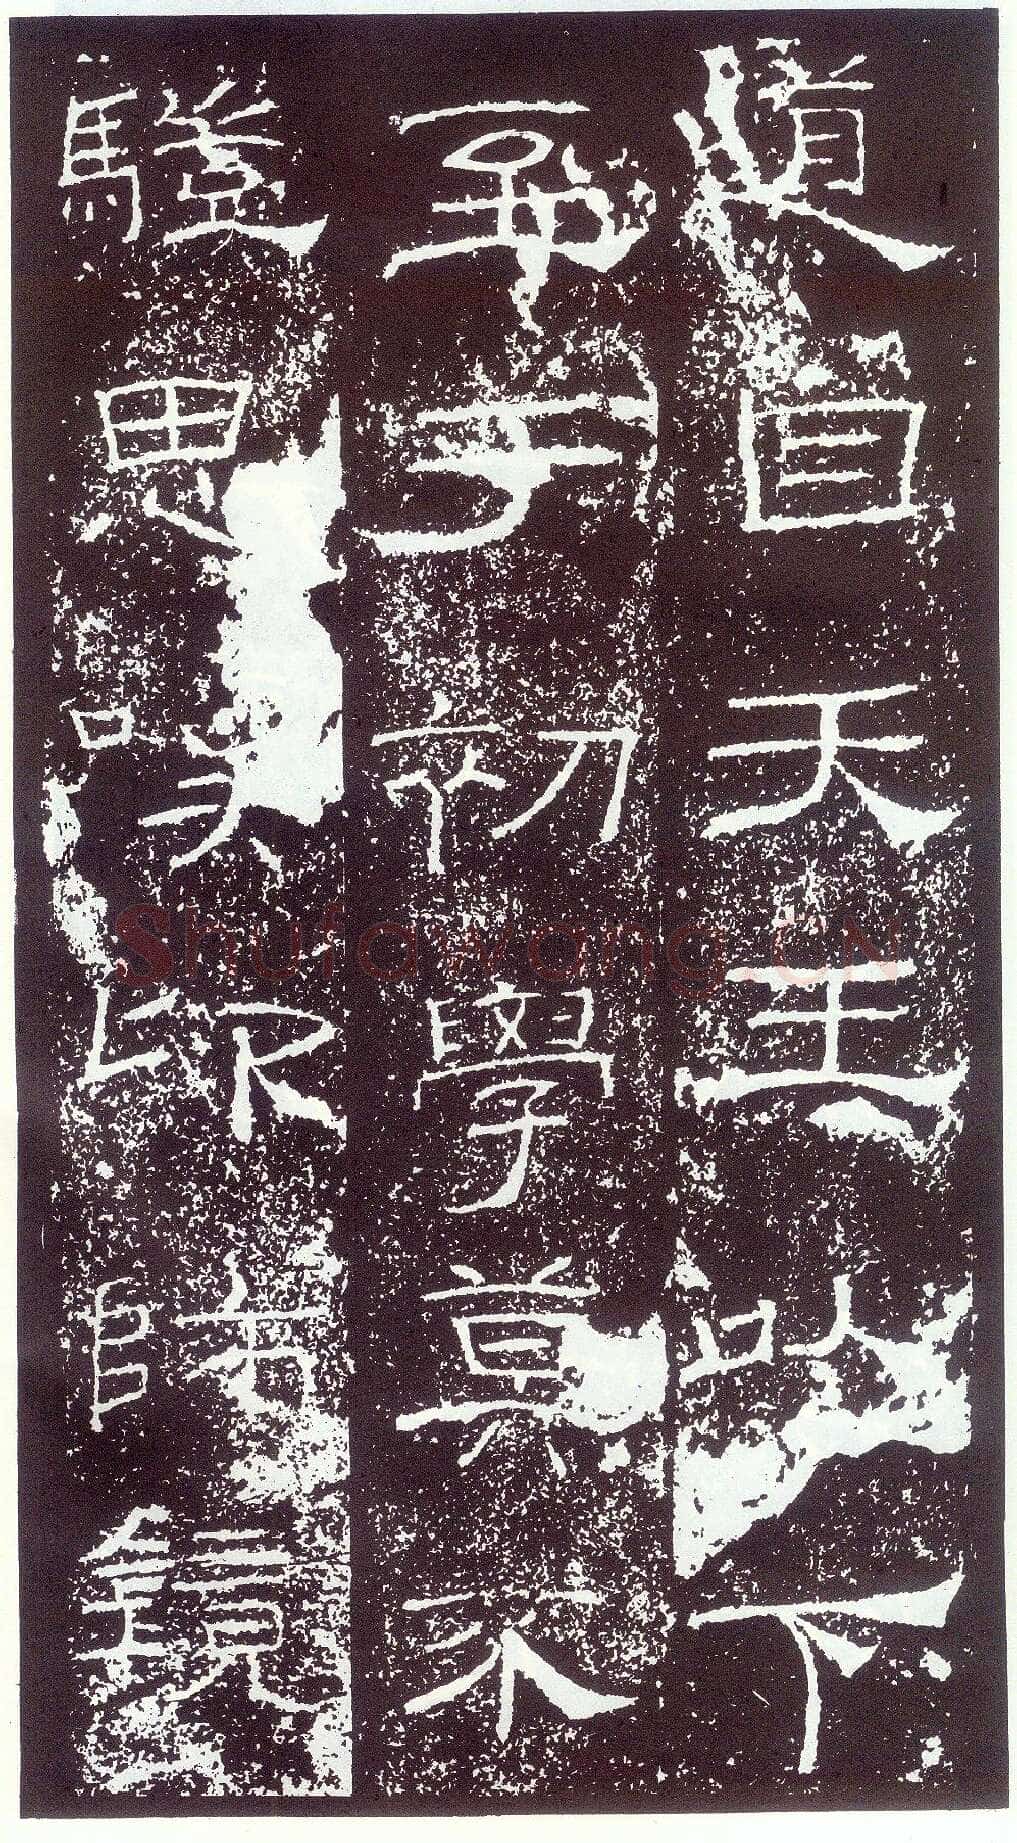 道自天王以下
至于初學莫不
驥思嘆卬師鏡
Shufawang.CN